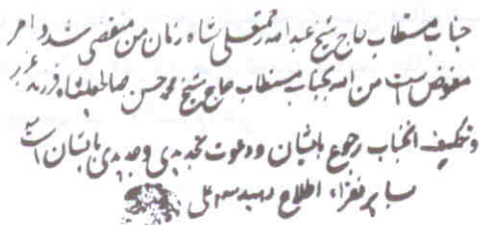 جناب مستطاب حاج شیخ عبدالله رحمتعلی شاه زمان من منقضی شد و امر
مفوض است من الله بجناب مستطاب حاج شیخ محمد حسن صالحعلیشاه فرزند
و تکلیف انجناب رجوع بایشان و دعوت تجدیدی و جدیدی بایشان است
بسایر فقراء اطلاع دهید